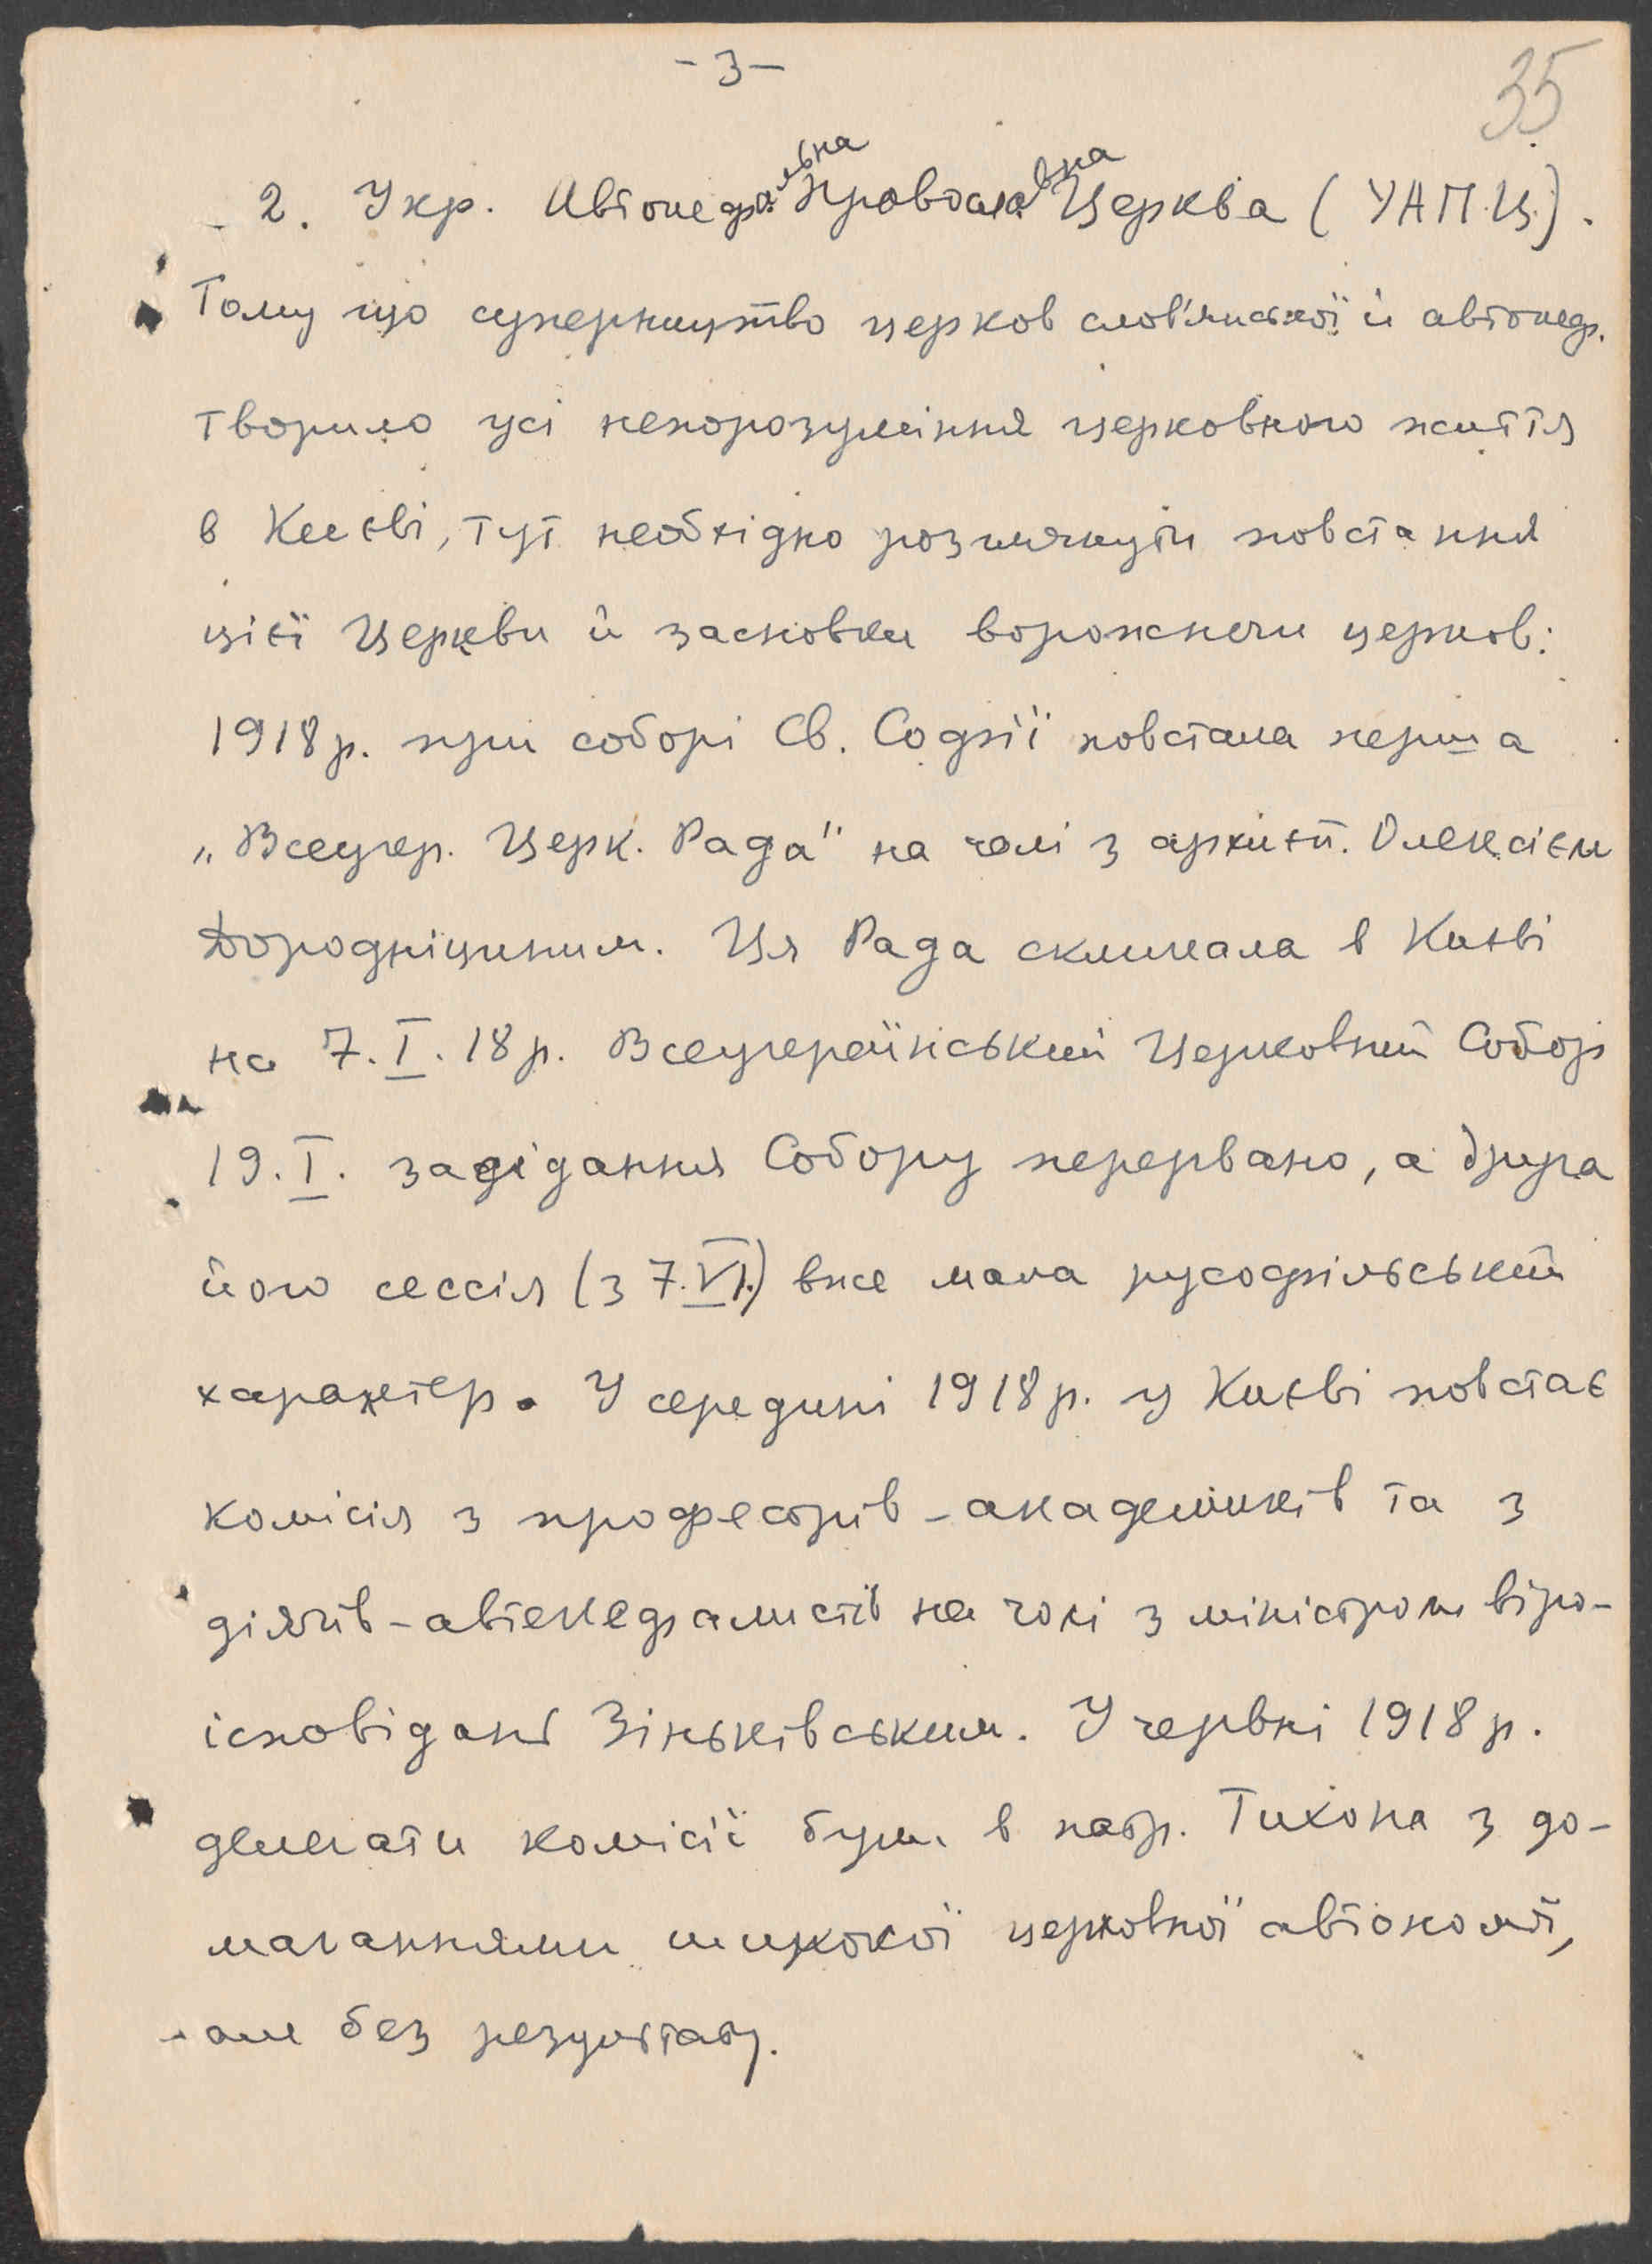 - 3 -
35
2. Укр. Автокефальна Православна Церква (УАПЦ).
Тому що суперництво церков слов'янської й автокеф.
творило усі непорозуміння церковного життя
в Києві, тут необхідно розглянути повстання
цієї Церкви й засновки ворожнечи церков:
1918 р. при соборі Св. Софії повстала перша
„Всеукр. Церк. Рада" на чолі з архиєп. Олексієм
Дородніциним. Ця Рада скликала в Києві
на 7.I.18 р. Всеукраїнський Церковний Собор
19.I. засідання Собору перервано, а друга
його сессія (з 7.VI.) вже мала русофільський
характер. У середині 1918 р. у Києві повстає
комісія з професорів-академиків та з
діячів-автокефалистів на чолі з міністром віро-
ісповідань Зіньківським. У червні 1918 р.
делегати комісії були в патр. Тихона з до-
маганнями широкої церковної автономії,
але без результату.